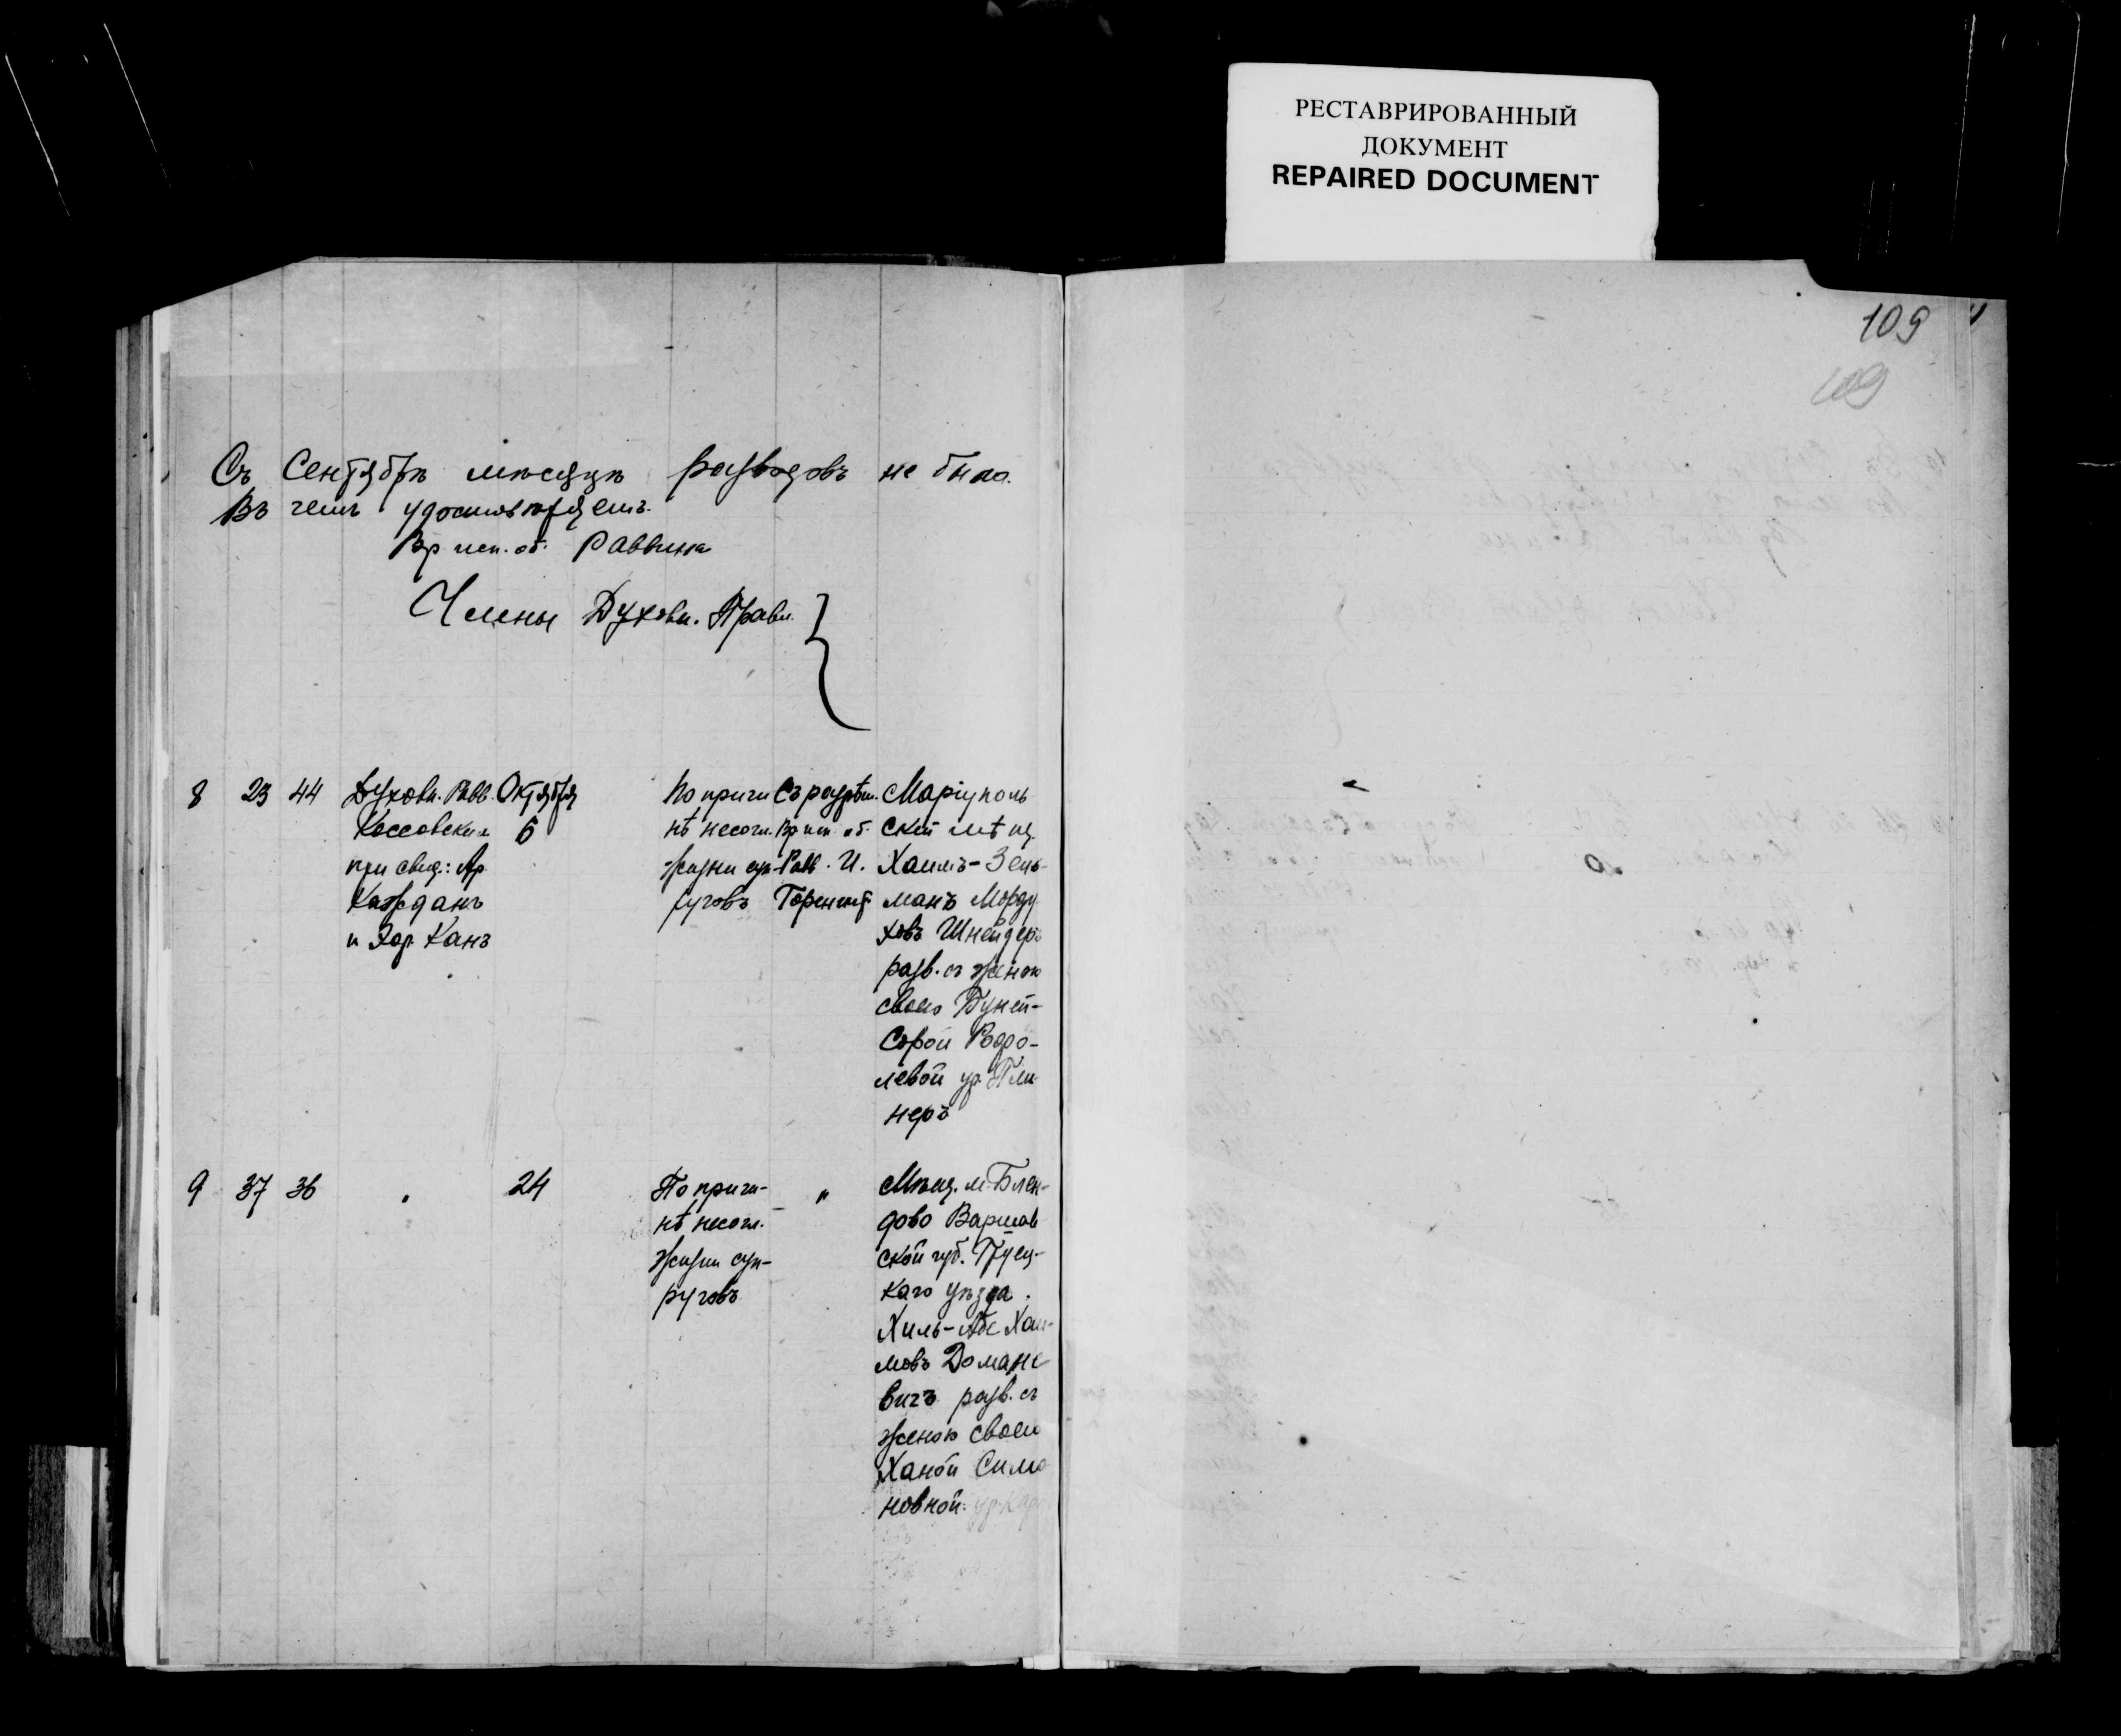 РЕСТАВРИРОВАННЫЙ
ДОКУМЕНТ
REPAIRED DOCUMENT
109
109
Съ Сентябрѣ мѣсяцѣ разводовъ не было.
Въ чемъ удостовѣряемъ.
Вр исп. об. Раввина
Члены Духовн. Правл.
8 23 44 Духовн. Равв. Октября
Коссовскимъ 6
при свид: Ар.
Кажданъ
и Хар. Канъ
По причи
нѣ несогл.
жизни суп-
руговъ
Съ разрѣш.
Вр исп. об.
Равв. И.
Маріуполь
скій мѣщ.
Хаимъ-Зель-
манъ Морду
ховъ Шнейдеръ
разв. съ женою
своею Дуней-
Сорой
левой ур.
неръ
9 37 36 " 24
По причи-
нѣ несогл.
жизни суп-
руговъ
"
Мѣщ. м. Блен-
дово Варшав
ской губ. Груец-
каго уѣзда.
Хиль-Абе Хаи-
мовъ Домане
вичъ разв. съ
женою своею
Ханой Симо
новной ур.